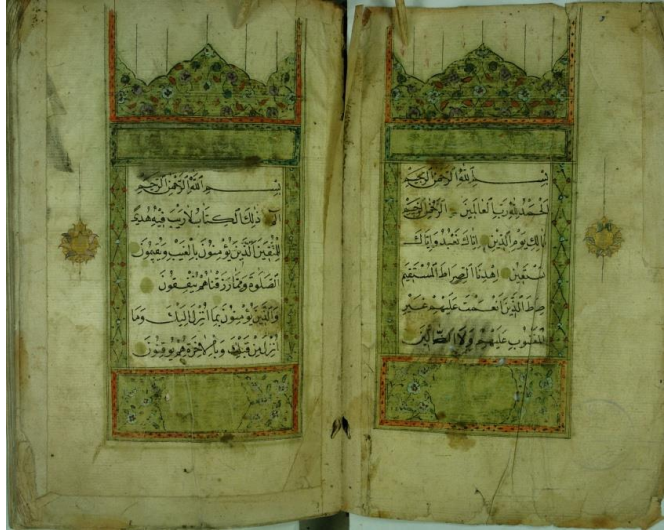 بِسْمِ اللَّهِ الرَّحْمَنِ الرَّحِيمِ
اَلْحَمْدُ لِلَّهِ رَبِّ الْعَالَمِينَ الرَّحْمَنِ الرَّحِيمِ
مَالِكِ يَوْمِ الدِّينِ اِيَّاكَ نَعْبُدُ وَاِيَّاكَ
نَسْتَعِينُ اِهْدِنَا الصِّرَاطَ الْمُسْتَقِيمَ
صِرَاطَ الَّذِينَ اَنْعَمْتَ عَلَيْهِمْ غَيْرِ
الْمَغْضُوبِ عَلَيْهِمْ وَلَا الضَّالِّينَ
بِسْمِ اللَّهِ الرَّحْمَنِ الرَّحِيمِ
الم ذَلِكَ الْكِتَابُ لَا رَيْبَ فِيهِ هُدًى
لِلْمُتَّقِينَ الَّذِينَ يُؤْمِنُونَ بِالْغَيْبِ وَيُقِيمُونَ
الصَّلَوةَ وَمِمَّا رَزَقْنَاهُمْ يُنْفِقُونَ
وَالَّذِينَ يُؤْمِنُونَ بِمَا اُنْزِلَ اِلَيْكَ وَمَا
اُنْزِلَ مِنْ قَبْلِكَ وَبِالْاَخِرَةِ هُمْ يُوقِنُونَ